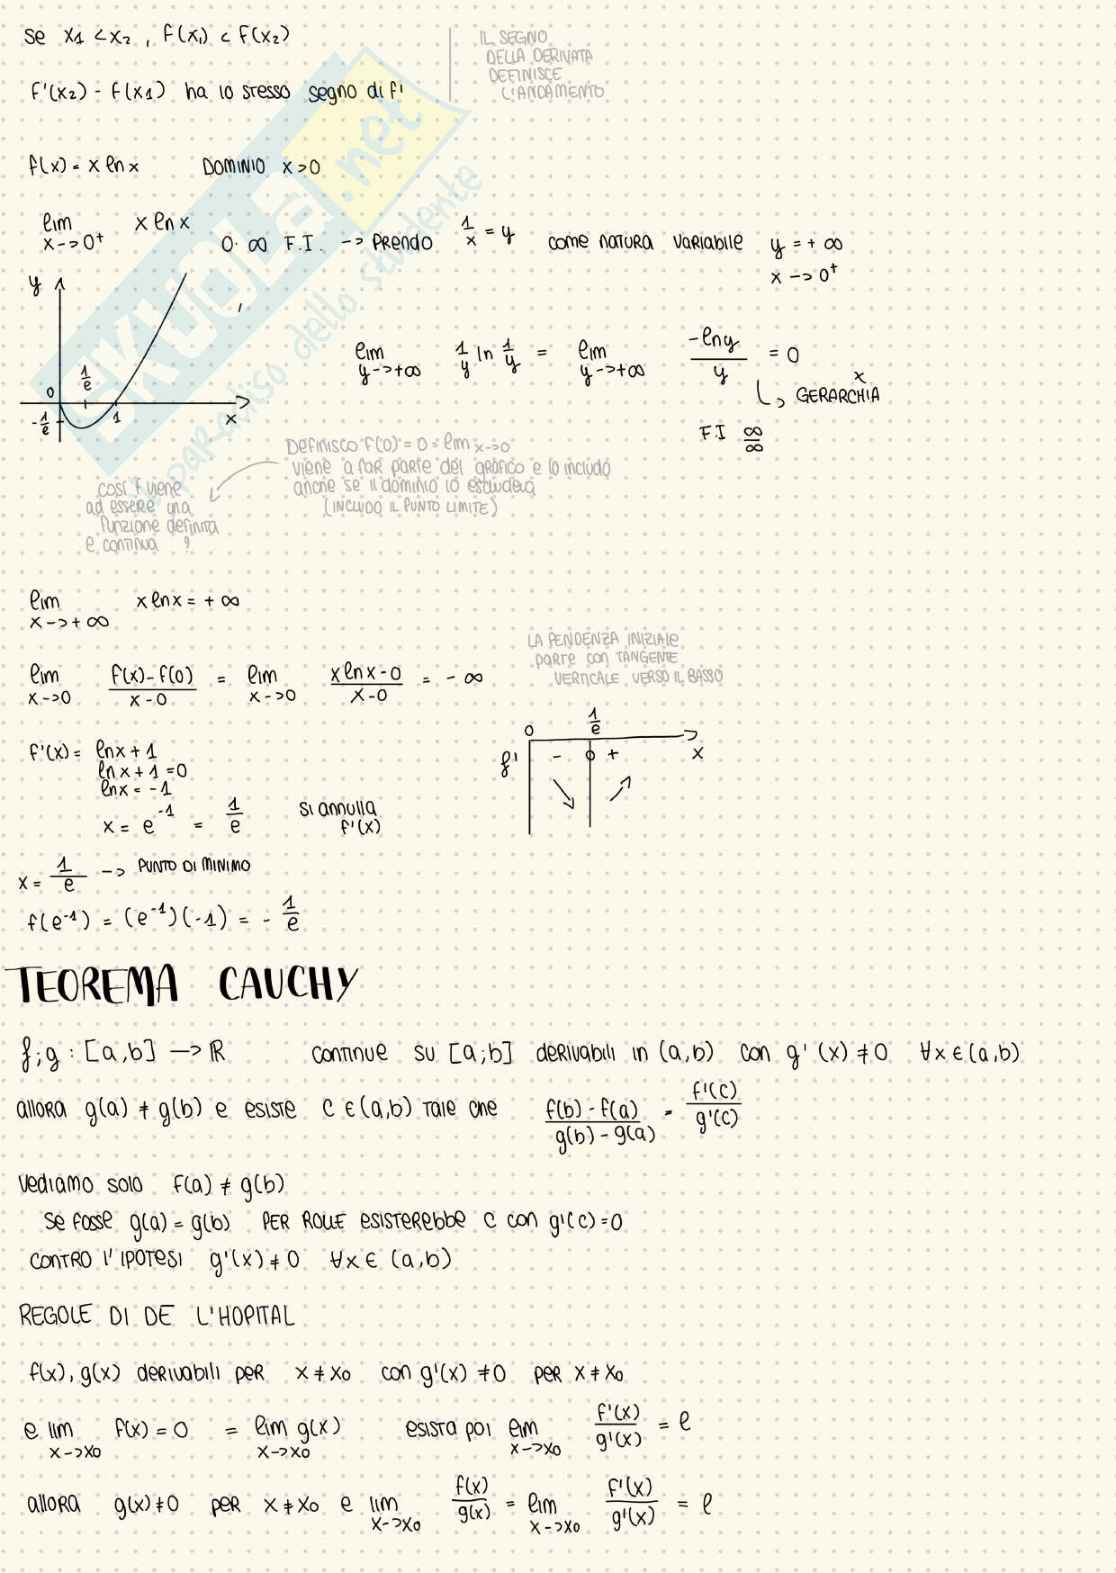 se x1 < x2 , f(x1) < f(x2)
IL SEGNO
DELLA DERIVATA
DEFINISCE
L'ANDAMENTO
f'(x2) - f(x1) ha lo stesso segno di f'
f(x) = x ln x DOMINIO x > 0
lim x->0+ x ln x 0·∞ F.I. -> PRENDO 1/x = y come natura variabile y = +∞
x -> 0+
y
0 1/e 1 x
-1/e
lim y->+∞ 1/y ln 1/y = lim y->+∞ -ln y / y = 0
GERARCHIA x
F.I ∞/∞
Definisco f(0) = 0 = lim x->0
viene a far parte del grafico e lo includo
anche se il dominio lo escludeva
(INCLUDO IL PUNTO LIMITE)
così f viene
ad essere una
funzione definita
e continua
SKUOLA.net
paradiso dello studente
lim x->+∞ x ln x = +∞
LA PENDENZA INIZIALE
parte con TANGENTE
VERTICALE VERSO IL BASSO
lim x->0 f(x) - f(0) / x - 0 = lim x->0 x ln x - 0 / x - 0 = -∞
0 1/e x
f' - 0 +
f'(x) = ln x + 1
ln x + 1 = 0
ln x = -1
x = e^-1 = 1/e si annulla f'(x)
x = 1/e -> PUNTO DI MINIMO
f(e^-1) = (e^-1)(-1) = - 1/e
TEOREMA CAUCHY
f;g : [a,b] -> ℝ continue su [a;b] derivabili in (a,b) con g'(x) ≠ 0 ∀x ∈ (a,b)
allora g(a) ≠ g(b) e esiste c ∈ (a,b) tale che f(b) - f(a) / g(b) - g(a) = f'(c) / g'(c)
vediamo solo f(a) ≠ g(b)
se fosse g(a) = g(b) PER ROLLE esisterebbe c con g'(c) = 0
contro l'ipotesi g'(x) ≠ 0 ∀x ∈ (a,b)
REGOLE DI DE L'HOPITAL
f(x), g(x) derivabili per x ≠ x0 con g'(x) ≠ 0 per x ≠ x0
e lim x->x0 f(x) = 0 = lim x->x0 g(x) esista poi lim x->x0 f'(x) / g'(x) = l
allora g(x) ≠ 0 per x ≠ x0 e lim x->x0 f(x) / g(x) = lim x->x0 f'(x) / g'(x) = l